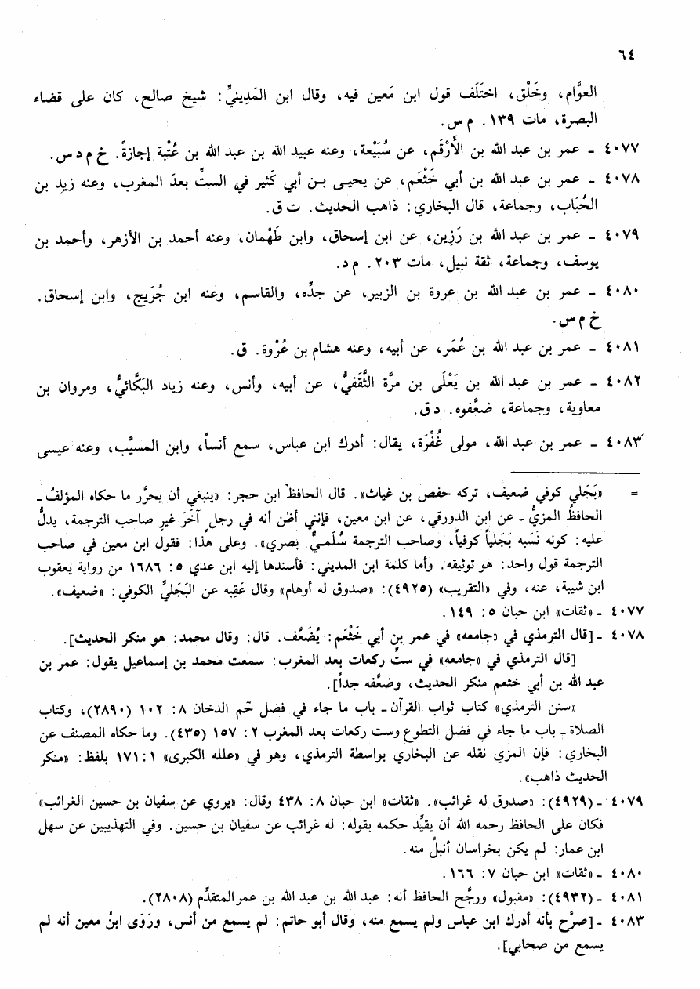 ٦٤
العوَّام، وخَلْق، اختَلَف قول ابن مَعين فيه، وقال ابن المَدِينيِّ: شيخ صالح، كان على قضاء
البصرة، مات ١٣٩. م س.
٤٠٧٧ ـ عمر بن عبد الله بن الأرْقَم، عن سُبَيْعة، وعنه عبيد الله بن عبد الله بن عُتْبة إجازةً. خ م د س.
٤٠٧٨ ـ عمر بن عبد الله بن أبي خَثْعَم، عن يحيى بـن أبي كَثير في الستِّ بعدَ المغرب، وعنه زيد بن
الحُبَاب، وجماعة، قال البخاري: ذاهب الحديث. ت ق.
٤٠٧٩ ـ عمر بن عبد الله بن رَزِين، عن ابن إسحاق، وابن طَهْمان، وعنه أحمد بن الأزهر، وأحمد بن
يوسف، وجماعة، ثقة نبيل، مات ٢٠٣. م د.
٤٠٨٠ ـ عمر بن عبد الله بن عروة بن الزبير، عن جدِّه، والقاسم، وعنه ابن جُرَيج، وابن إسحاق.
خ م س.
٤٠٨١ ـ عمر بن عبد الله بن عُمَر، عن أبيه، وعنه هشام بن عُرْوة. ق.
٤٠٨٢ ـ عمر بن عبد الله بن يَعْلَى بن مرَّة الثَّقَفيُّ، عن أبيه، وأنس، وعنه زياد البَكَّائيُّ، ومروان بن
معاوية، وجماعة، ضعَّفوه. د ق.
٤٠٨٣ ـ عمر بن عبد الله، مولى غُفْرَة، يقال: أدرك ابن عباس، سمع أنساً، وابن المسيَّب، وعنه عيسى
= «بَجَلي كوفي ضعيف، تركه حفص بن غياث». قال الحافظ ابن حجر: «ينبغي أن يحرَّر ما حكاه المؤلفُ ـ
الحافظُ المزيُّ ـ عن ابن الدورقي، عن ابن معين، فإنني أظن أنه في رجلٍ آخَرَ غيرِ صاحب الترجمة، يدلُّ
عليه: كونُه نَسَبه بَجَلياً كوفياً، وصاحب الترجمة سُلَميٌّ بصري». وعلى هذا: فقول ابن معين في صاحب
الترجمة قول واحد: هو توثيقه. وأما كلمة ابن المديني: فأسندها إليه ابن عدي ٥: ١٦٨٦ من رواية يعقوب
ابن شيبة، عنه، وفي «التقريب» (٤٩٢٥): «صدوق له أوهام» وقال عَقِبه عن البَجَليِّ الكوفي: «ضعيف».
٤٠٧٧ ـ «ثقات» ابن حبان ٥: ١٤٩.
٤٠٧٨ ـ [قال الترمذي في «جامعه» في عمر بن أبي خَثْعم: يُضعَّف. قال: وقال محمد: هو منكر الحديث].
[قال الترمذي في «جامعه» في ستِّ ركعات بعد المغرب: سمعت محمد بن إسماعيل يقول: عمر بن
عبد الله بن أبي خثعم منكر الحديث، وضعَّفه جداً].
«سنن الترمذي» كتاب ثواب القرآن ـ باب ما جاء في فضل حَم الدخان ٨: ١٠٢ (٢٨٩٠)، وكتاب
الصلاة ـ باب ما جاء في فضل التطوع وست ركعات بعد المغرب ٢: ١٥٧ (٤٣٥). وما حكاه المصنف عن
البخاري: فإن المزي نقله عن البخاري بواسطة الترمذي، وهو في «علله الكبرى» ١: ١٧١ بلفظ: «منكر
الحديث ذاهب».
٤٠٧٩ ـ (٤٩٢٩): «صدوق له غرائب». «ثقات» ابن حبان ٨: ٤٣٨ وقال: «يروي عن سفيان بن حسين الغرائب»
فكان على الحافظ رحمه الله أن يقيِّد حكمه بقوله: له غرائب عن سفيان بن حسين. وفي التهذيبين عن سهل
ابن عمار: لم يكن بخراسان أنبلُ منه.
٤٠٨٠ ـ «ثقات» ابن حبان ٧: ١٦٦.
٤٠٨١ ـ (٤٩٣٢): «مقبول» ورجَّح الحافظ أنه: عبد الله بن عبد الله بن عمر المتقدِّم (٢٨٠٨).
٤٠٨٣ ـ [صرَّح بأنه أدرك ابن عباس ولم يسمع منه، وقال أبو حاتم: لم يسمع من أنس، ورَوَى ابنُ معين أنه لم
يسمع من صحابي].